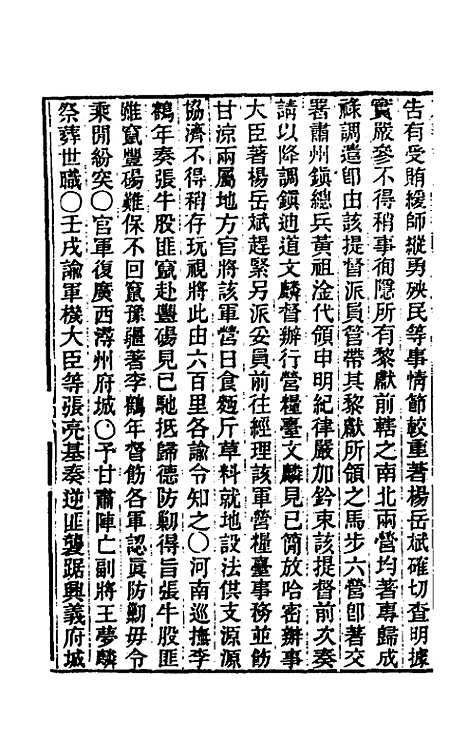 告有受賄縱師縱勇殃民等事情節較重著楊岳斌確切查明據
實嚴參不得稍事徇隱所有黎獻前轄之南北兩營均著專歸成
祿調遣卽由該提督派員管帶其黎獻所領之馬步六營卽著交
署肅州鎭總兵黃祖淦代領申明紀律嚴加鈐束該提督前次奏
請以降調鎭迪道文麟督辦行營糧臺文麟見已簡放哈密辦事
大臣著楊岳斌趕緊另派妥員前往經理該軍營糧臺事務並飭
甘涼兩屬地方官將該軍營日食麵斤草料就地設法供支源源
協濟不得稍存玩視將此由六百里各諭令知之○河南巡撫李
鶴年奏張牛股匪竄赴豐碭見已馳抵歸德防勦得旨張牛股匪
雖竄豐碭難保不回竄豫疆著李鶴年督飭各軍認眞防勦毋令
乘閒紛突○官軍復廣西潯州府城○予甘肅陣亡副將王夢麟
祭葬世職○壬戌諭軍機大臣等張亮基奏逆匪襲踞興義府城